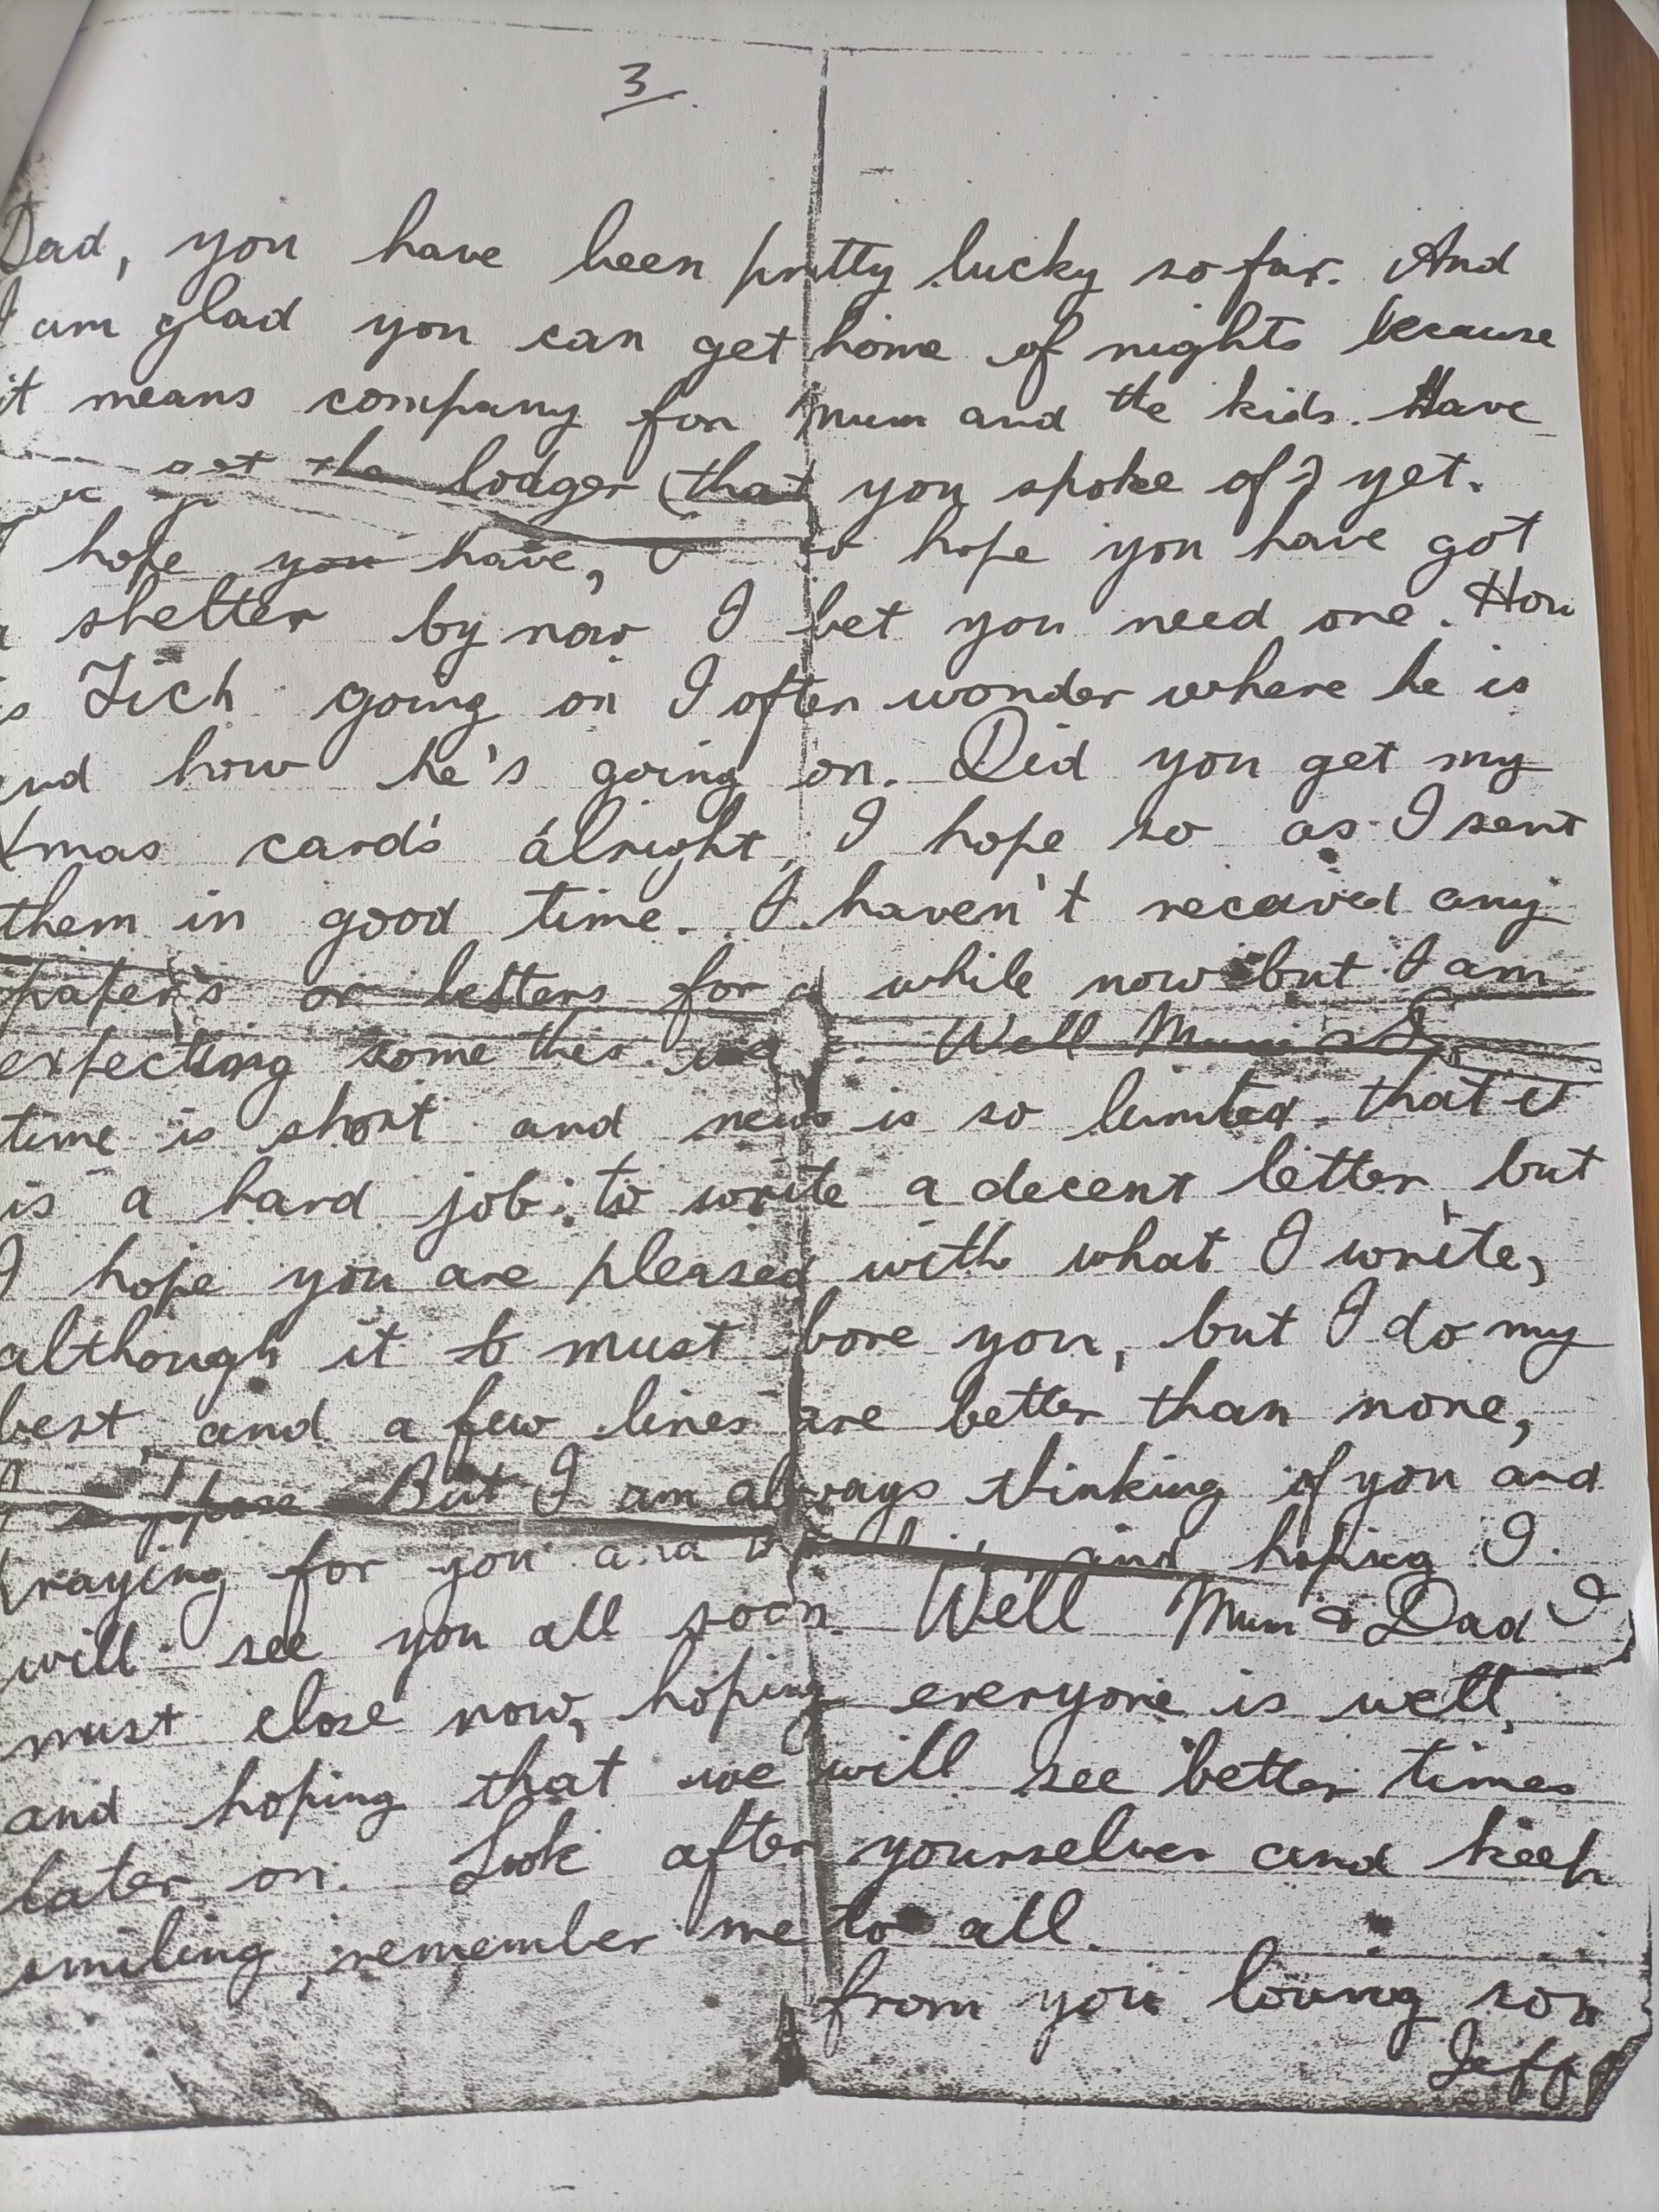 3
Dad, you have been pretty lucky so far. And
I am glad you can get home of nights because
it means company for Mum and the kids. Have
got the lodger (that you spoke of) yet.
hope you have, I hope you have got
a shelter by now I bet you need one. How
is Tich going on I often wonder where he is
and how he's going on. Did you get my
Xmas card's alright, I hope so as I sent
them in good time. I haven't received any
paper's or letters for a while now but I am
expecting some Well Mum &
time is short and news is so limited that it
is a hard job to write a decent letter, but
I hope you are pleased with what I write,
although it b must bore you, but I do my
best, and a few lines are better than none,
I suppose But I am always thinking of you and
praying for you and and hoping I
will see you all soon. Well Mum & Dad I
must close now, hoping everyone is well,
and hoping that we will see better times
later on. Look after yourselves and keep
smiling, remember me to all.
from you loving son
Jeff